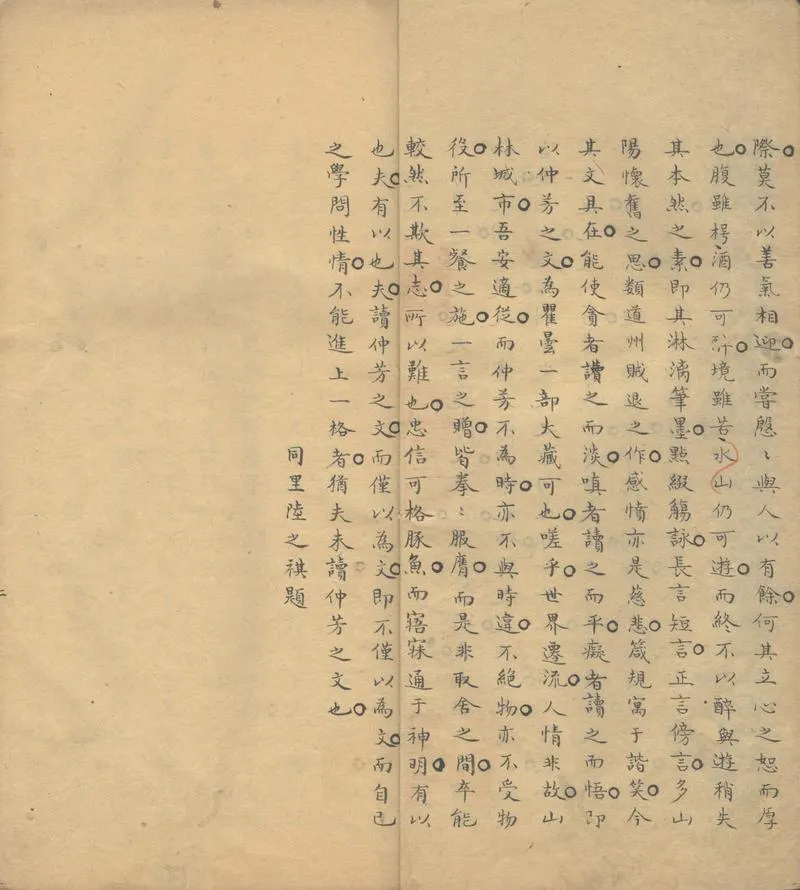 際莫不以善氣相迎而嘗慇〻與人以有餘何其立心之恕而厚
也腹雖枵酒仍可酹境雖苦永山仍可遊而終不以醉與遊稍失
其本然之素即其淋漓筆墨點綴觴詠長言短言正言傍言多山
陽懷舊之思類道州賊退之作感憤亦是慈悲箴規寓于諧笑今
其文具在能使貪者讀之而淡嗔者讀之而平癡者讀之而悟即
以仲芳之文為瞿曇一部大藏可也嗟乎世界遷流人情非故山
林城市吾安適從而仲芳不為時亦不與時違不絕物亦不受物
役所至一餐之施一言之贈皆拳〻服膺而是非取舍之間卒能
較然不欺其志所以難也忠信可格豚魚而寤寐通于神明有以
也夫有以也夫讀仲芳之文而僅以為文即不僅以為文而自己
之學問性情不能進上一格者猶夫未讀仲芳之文也
同里陸之祺題